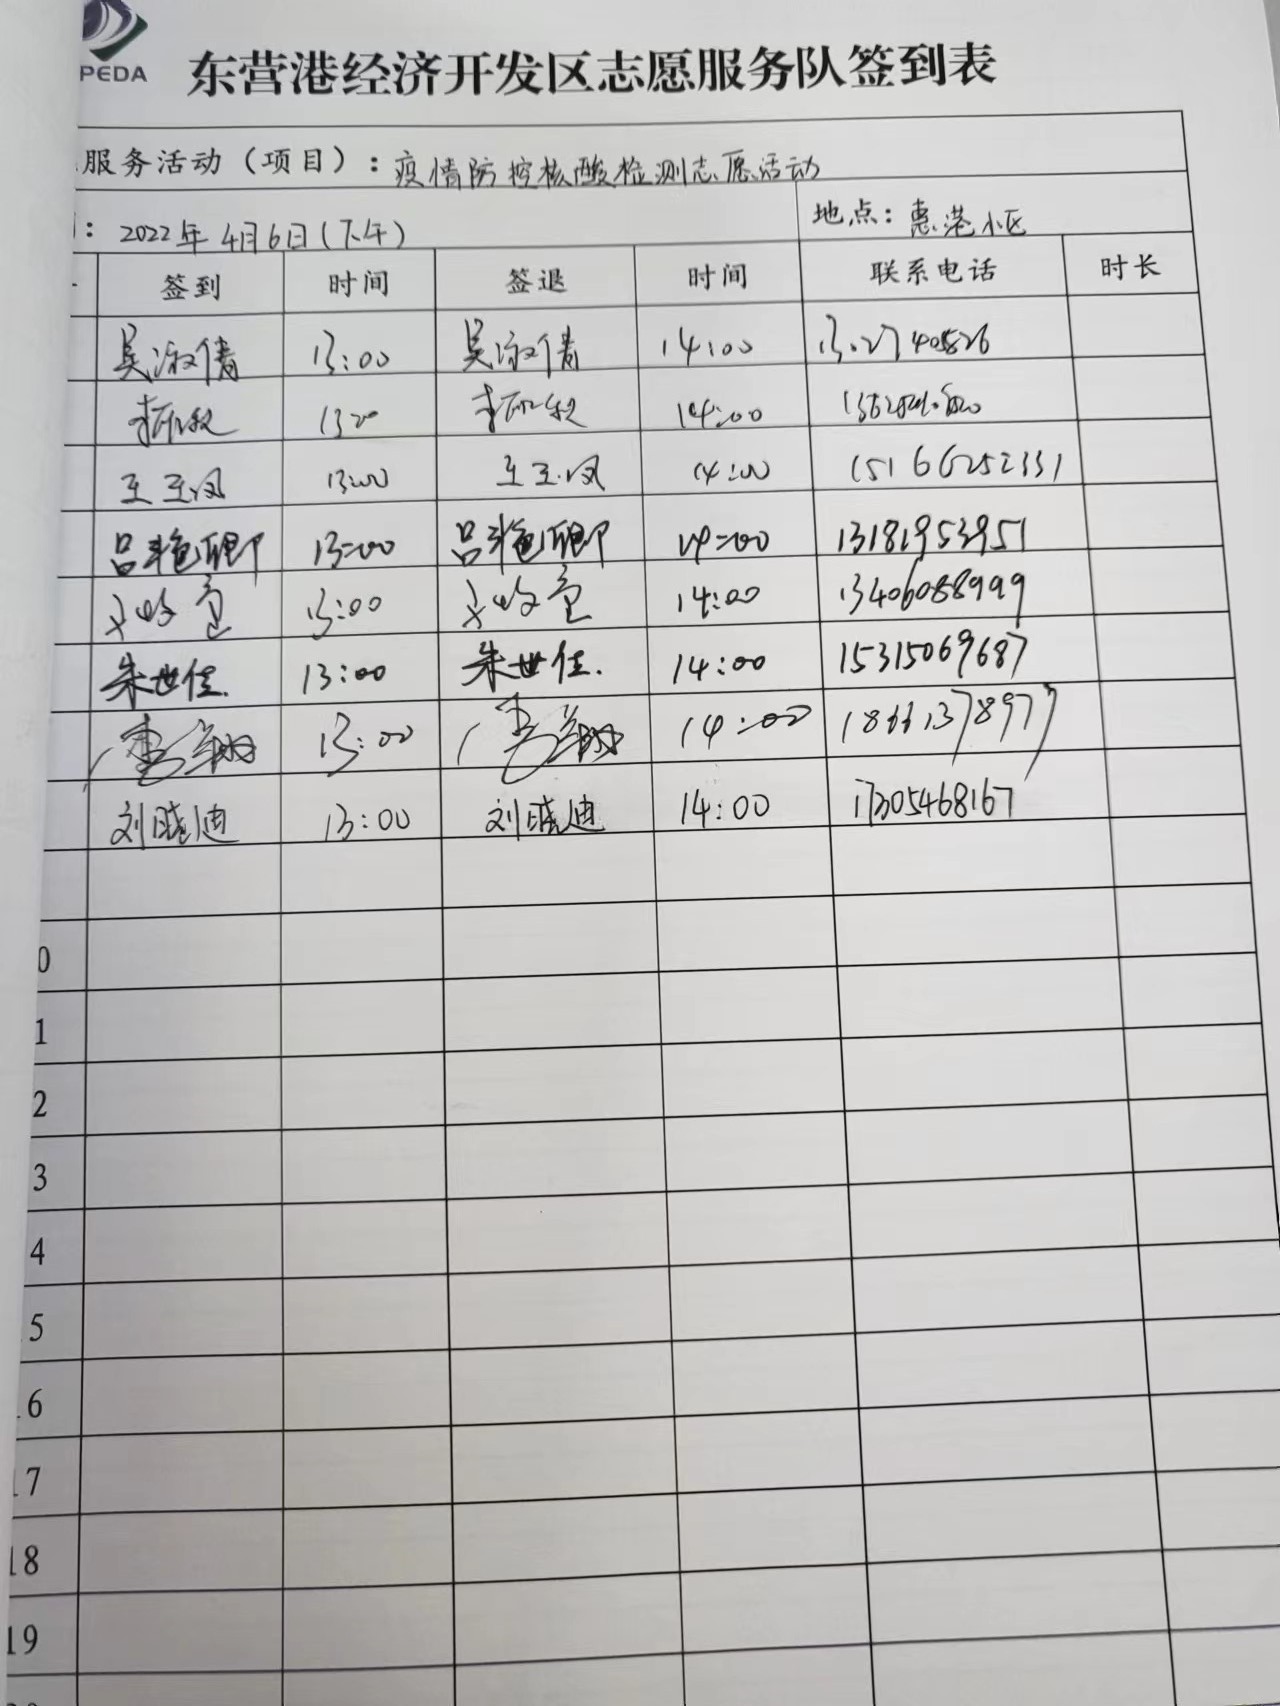 PEDA
东营港经济开发区志愿服务队签到表
服务活动（项目）：疫情防控核酸检测志愿活动
：2022年4月6日(下午) 地点：惠港小区
签到 时间 签退 时间 联系电话 时长
吴淑倩 13:00 吴淑倩 14:00
14:00
王玉凤 13:00 王玉凤 14:00
吕艳卿 13:00 吕艳卿 14:00 13181953951
13:00 14:00 13406088999
朱世佳. 13:00 朱世佳. 14:00 15315069687
13:00 14:00
刘晓迪 13:00 刘晓迪 14:00 17305468167
0
1
2
3
4
5
16
17
18
19